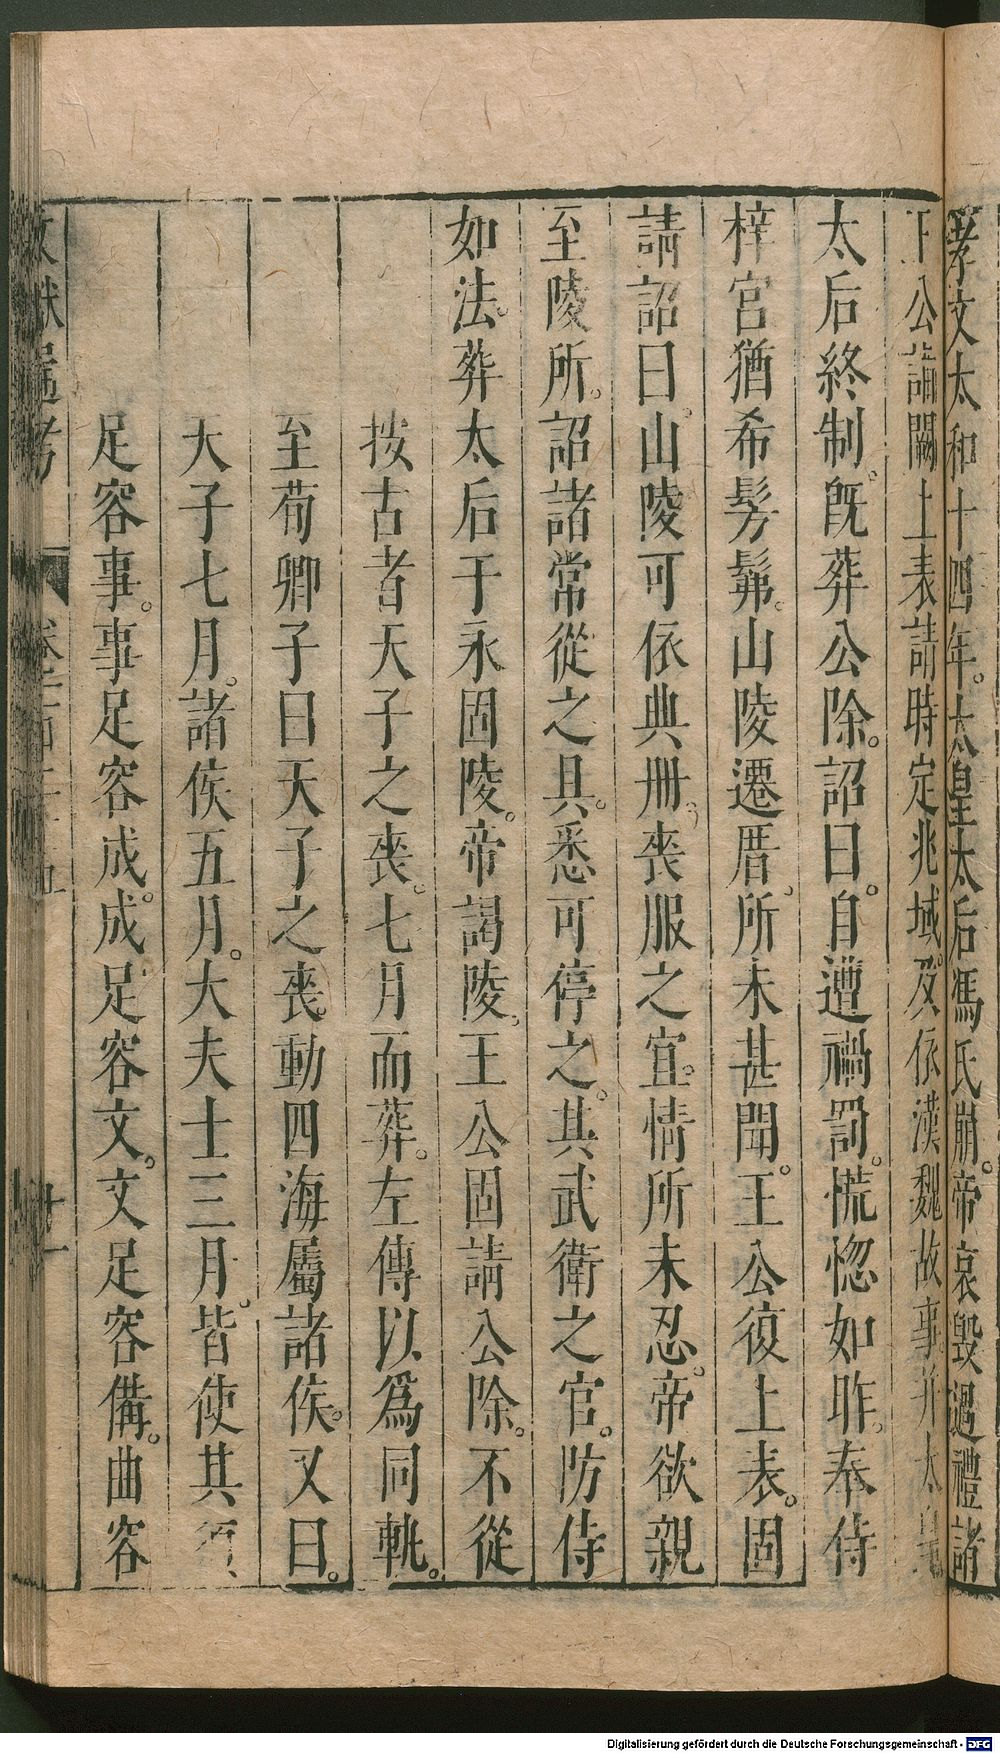 孝文太和十四年。太皇太后馮氏崩。帝哀毀過禮諸
王公詣闕上表請時定兆域。及依漢魏故事。并太皇
太后終制。旣葬公除。詔曰。自遭禍罰。慌惚如昨。奉侍
梓宮猶希髣髴。山陵遷厝。所未甚聞。王公復上表。固
請詔曰。山陵可依典冊。喪服之宜。情所未忍。帝欲親
至陵所。詔諸常從之具。悉可停之。其武衛之官。防侍
如法。葬太后于永固陵。帝謁陵。王公固請公除。不從
按古者天子之喪。七月而葬。左傳以爲同軌。
至荀卿子曰天子之喪。動四海屬諸侯。又曰。
天子七月。諸侯五月。大夫士三月。皆使其須
足容事。事足容成。成足容文。文足容備。曲容
文獻通考
Digitalisierung gefördert durch die Deutsche Forschungsgemeinschaft - DFG